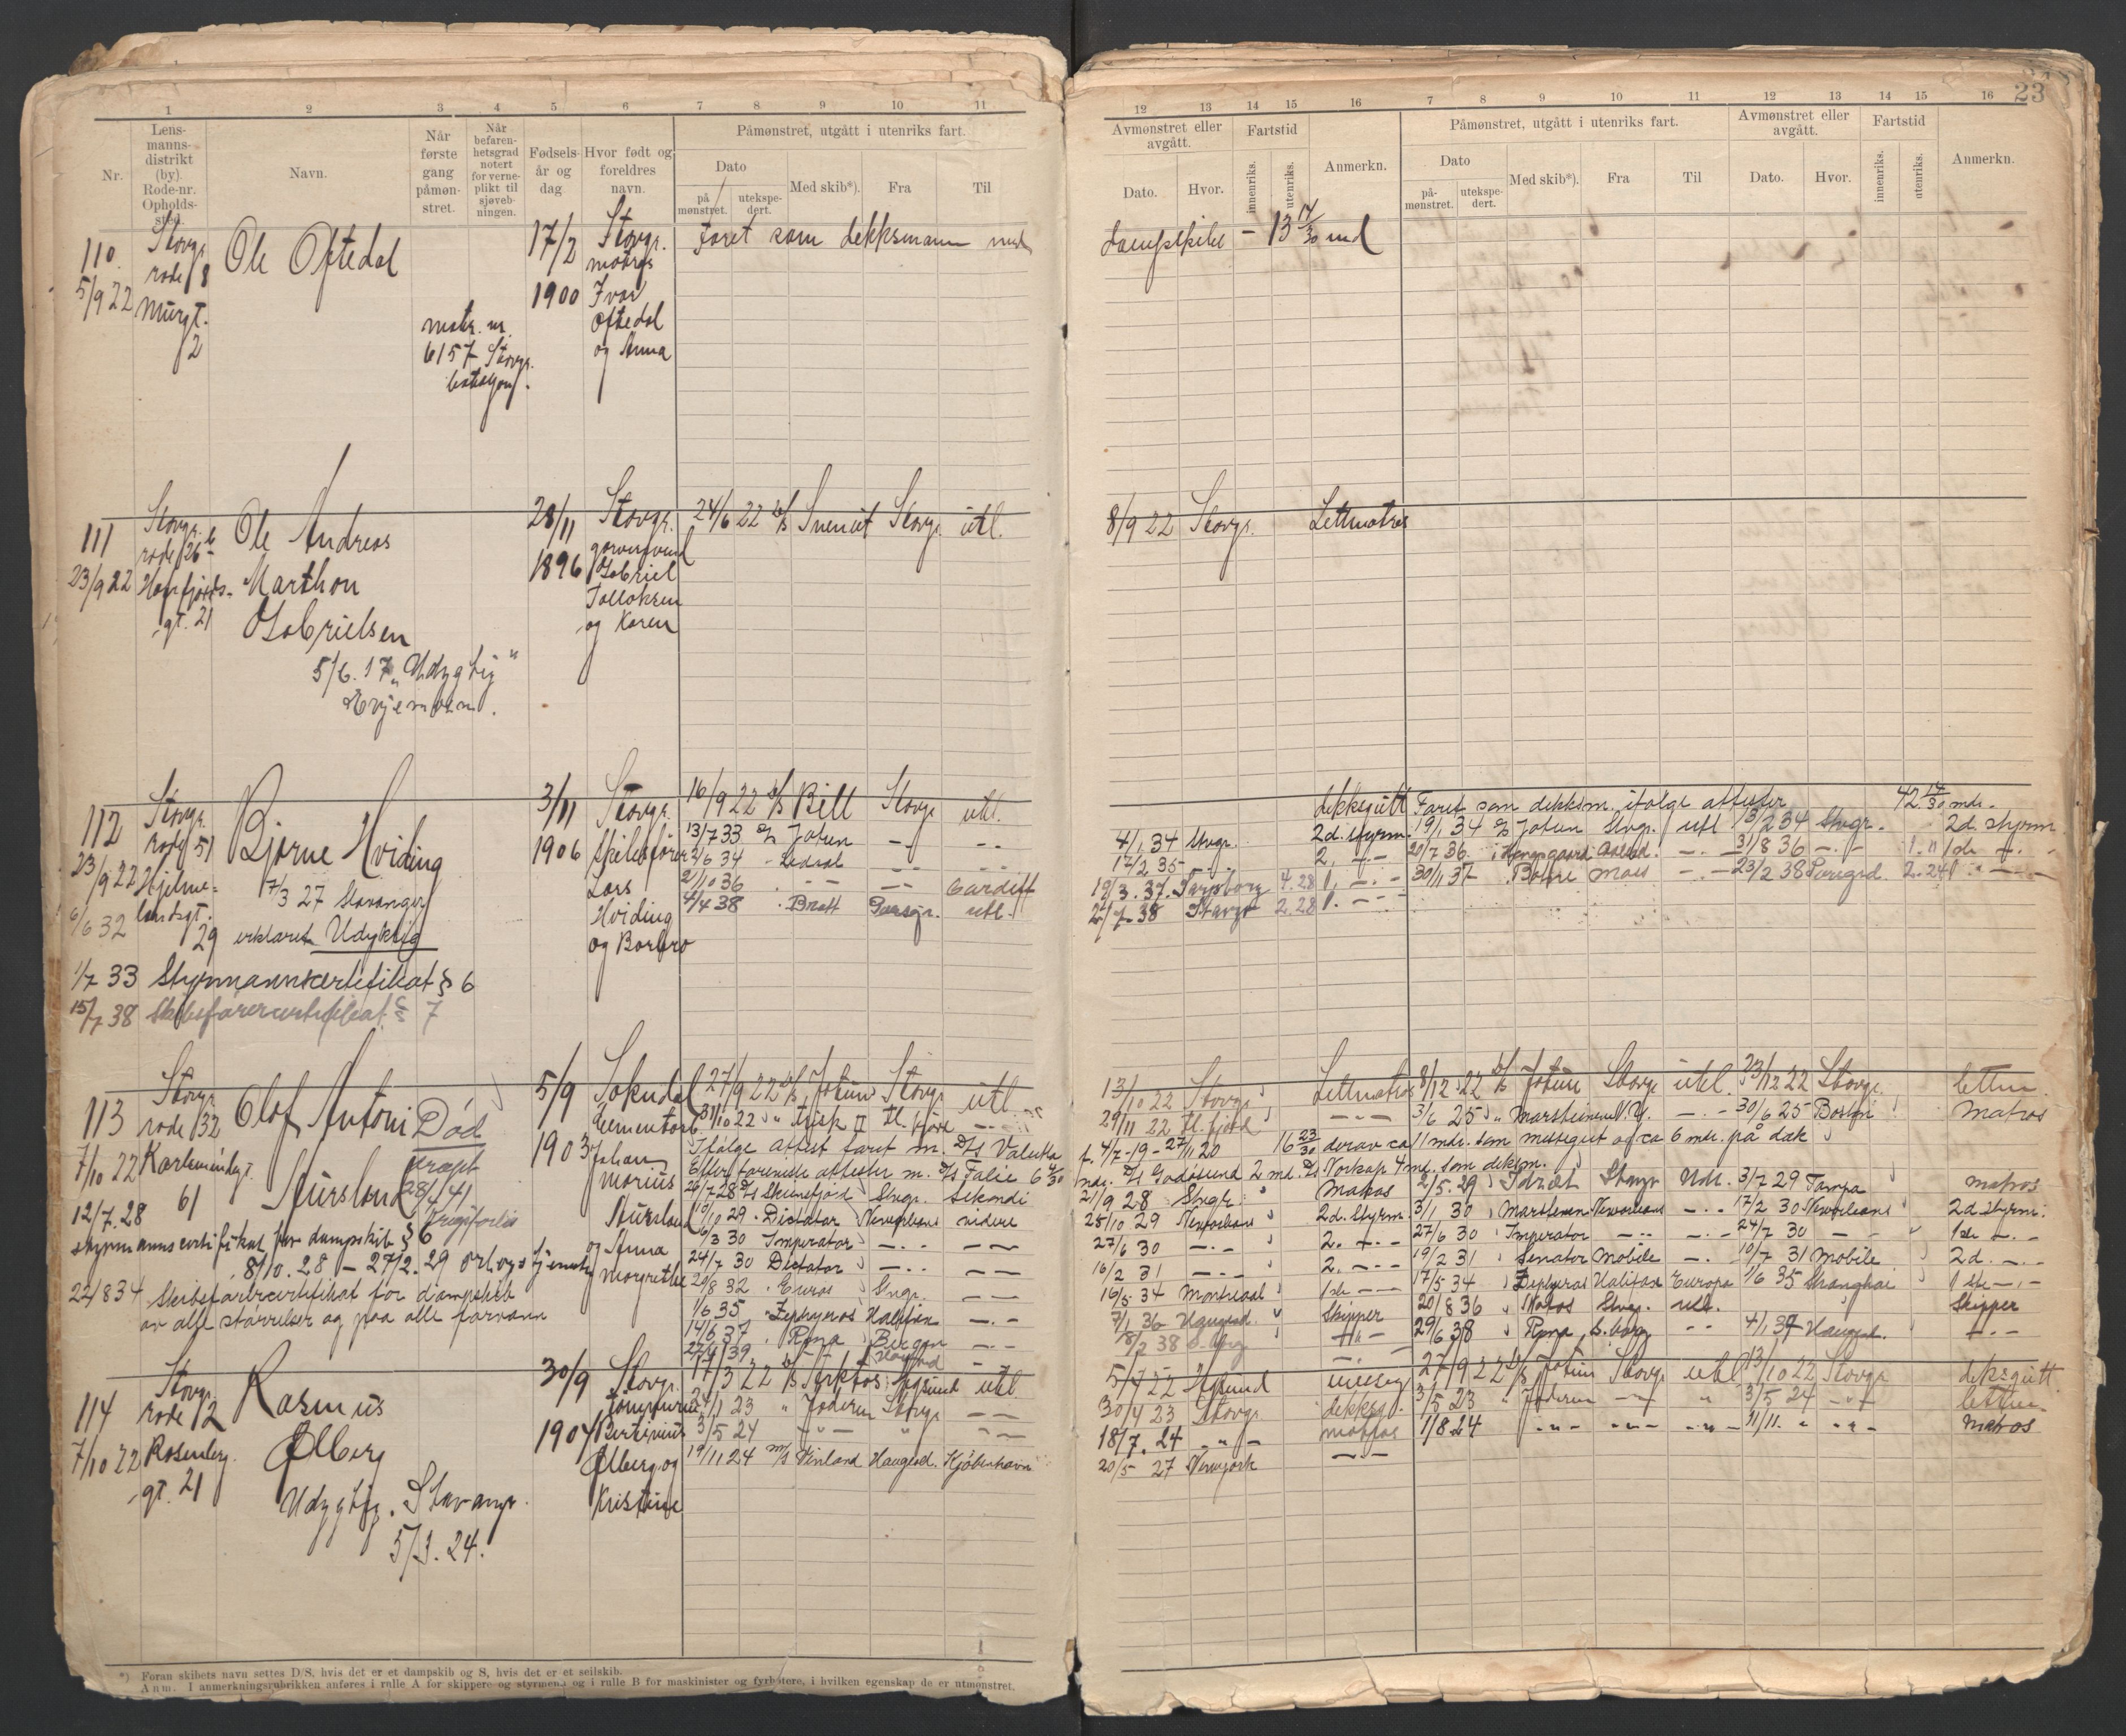 23
1 2 3 4 5 6 7 8 9 10 11
12 13 14 15 16 7 8 9 10 11 12 13 14 15 16
Nr.
Lens-
manns-
distrikt
(by).
Rode-nr.
Opholds-
sted.
Navn.
Når
første
gang
påmøn-
stret.
Når
befaren-
hetsgrad
notert
for verne-
plikt til
sjøveb-
ningen.
Fødsels-
år og
dag
Hvor født og
foreldres
navn.
Påmønstret, utgått i utenriks fart.
Dato
på
mønstret.
utekspe-
dert.
Med skib*).
Fra
Til
Avmønstret eller
avgått.
Dato.
Hvor.
Fartstid
innenriks.
utenriks.
Anmerkn.
Påmønstret, utgått i utenriks fart.
Dato
på-
mønstret.
utekspe-
dert.
Med skib*).
Fra
Til
Avmønstret eller
avgått.
Dato.
Hvor.
Fartstid
innenriks.
utenriks.
Anmerkn.
110.
5/9 22
Stavgr.
rode 8
Murgt.
2
Ole Oftedal
matr. nr.
6157 Stavgr.
bataljon.
17/2
1900
Stavgr.
Ivar
Oftedal
og Anna
Faret som dekksmann med
dampskibe - 13 14/30 md
111
23/9 22
Stavgr.
rode 26 b
gt. 21
Ole Andreas
Marthon
Gabrielsen
5/6. 17 „Udygtig"
Evjemoen.
28/11
1896
Stavgr.
Gabriel
og Karen
24/6 22 Stavgr. utl.
8/9 22 Stavgr. Lettmatros
112
23/9 22
6/6 32
Stavgr.
rode 51
Hjelme-
landsgt.
29
Bjarne Hviding
7/3 27 Stavanger
erklæret Udyktig
1/7 33 Styrmannscertifikat § 6
15/7 38 Skibsførercertifikat § 7
3/11
1906
Stavgr.
Skibsfører
Lars
Hviding
og Barbro
16/9 22 D/S Bill Stavgr utl.
13/7 33 D/S Jotun -- --
2/6 34 - Ledaal -- --
21/10 36 . -- -- Cardiff
4/4 38 . Bratt Porsgr. utl.
dekksgutt Faret som dekksm. ifølge attester 42 14/30 mdr.
4/1 34 Stvgr. 2d. styrm. 19/1 34 D/S Jotun Stvgr. utl 13/2 34 Stvgr. 2d. styrm
17/2 35 -.- 2. -.- 20/7 36 -.- 31/8 36 -.- 1. 11 1ste -.-
19/3. 37. Sarpsborg 4.28 1. -.- 30/11 37 Moss -.- 23/2 38 2.24 1. -.-
2/7 38 Stavgr 2.28 1. -.-
113
7/10 22
Stavgr.
rode 32
61
Olaf Antoni
Død
28/4 41
Krigsforlis
12/7. 28
styrmannscertifikat for dampskib § 6
8/10. 28 - 27/2. 29
22/8 34 Skibsførercertifikat for dampskib
av alle størrelser og paa alle farvann
5/9
1903
Sokndal
Johan
Morius
og Anna
Margrethe
27/9 22 D/S Jotun Stavgr utl.
31/10 22 " Fisk II
Ifølge attest faret m. D/S
Efter foreviste attester m. D/S Talis 6 4/30
26/7 28 D/S Skiensfjord Stvgr. Sekondi
10/10 29 . Dictator Neworleans videre
6/3 30 Imperator -.- --
24/7 30 Dictator -.- --
29/8 32 . Euros Stvgr. --
1/6 35 . Zephyros Halifax -.-
14/6 37 . Rona Bergen
27/4 39
13/10 22 Stavgr Lettmatros 8/12 22 D/S Jotun Stavgr utl. 23/12 22 Stavgr. lettm
29/11 22 -.- 3/6 25 N.Y. -.- 30/6 25 Boston Matros
f. 4/7 - 19 - 27/11 20 16 23/30 derav ca 11 mdr. som messegut og ca 6 mdr. på dæk
mdr. D/S Godøsund 2 md. D/S Norkap 4 md. som deksm.
21/9 28 Stvgr. Matros 2/5. 29 Idræt Stavgr Udr. 3/7 29 Tampa matros
25/10 29 Neworleans 2d. Styrm. 3/1 30 Marsteinen Neworleans -.- 17/2 30 Neworleans 2d styrm.
27/6 30 -.- 2. -.- 27/6 30 Imperator -.- 24/7 30 - 1ste -.-
16/2 31 -.- 2. -.- 19/2 31 Senator Mobile -. 10/7 31 Mobile 2d. -.-
16/5 34 Montreal 1ste -- 17/5 34 Zephyros Halifax Europa 1/6 35 Shanghai 1ste -.-
7/1 36 Haugesd. Skipper 20/8 36 Notos Stvgr. utl. Skipper
8/2 38 -"- 29/6 38 Rona S.borg -- 4/1 39 Haugesd. -.-
114
7/10 22
Stavgr.
rode 2
Rosenberg-
gt. 21
Rasmus
Ølberg
Udygtig. Stavanger.
5/3. 24.
30/9
1904
Stavgr.
Bertinius
Ølberg og
Kristine
17/3 22 D/S utl
24/1 23 " Jæderen Stavgr --
3/5 24 -"- " --
19/11 24 M/S Vinland Haugesd. Kjøbenhavn
5/7 22 27/9 22 D/S Jotun Stavgr utl 13/10 22 Stavgr deksgutt.
30/4 23 Stavgr. deksg. 3/5 23 " Jæderen -"- " 3/5 24 -"- lettm.
18/7. 24 -"- matros 1/8 24 -"- -"- -"- 11/11. " -"- Matros
20/5 27 Newyork -.-
*) Foran skibets navn settes D/S, hvis det er et dampskib og S, hvis det er et seilskib.
Anm. I anmerkningsrubrikken anføres i rulle A for skippere og styrmenn og i rulle B for maskinister og fyrbøtere, i hvilken egenskap de er utmønstret.